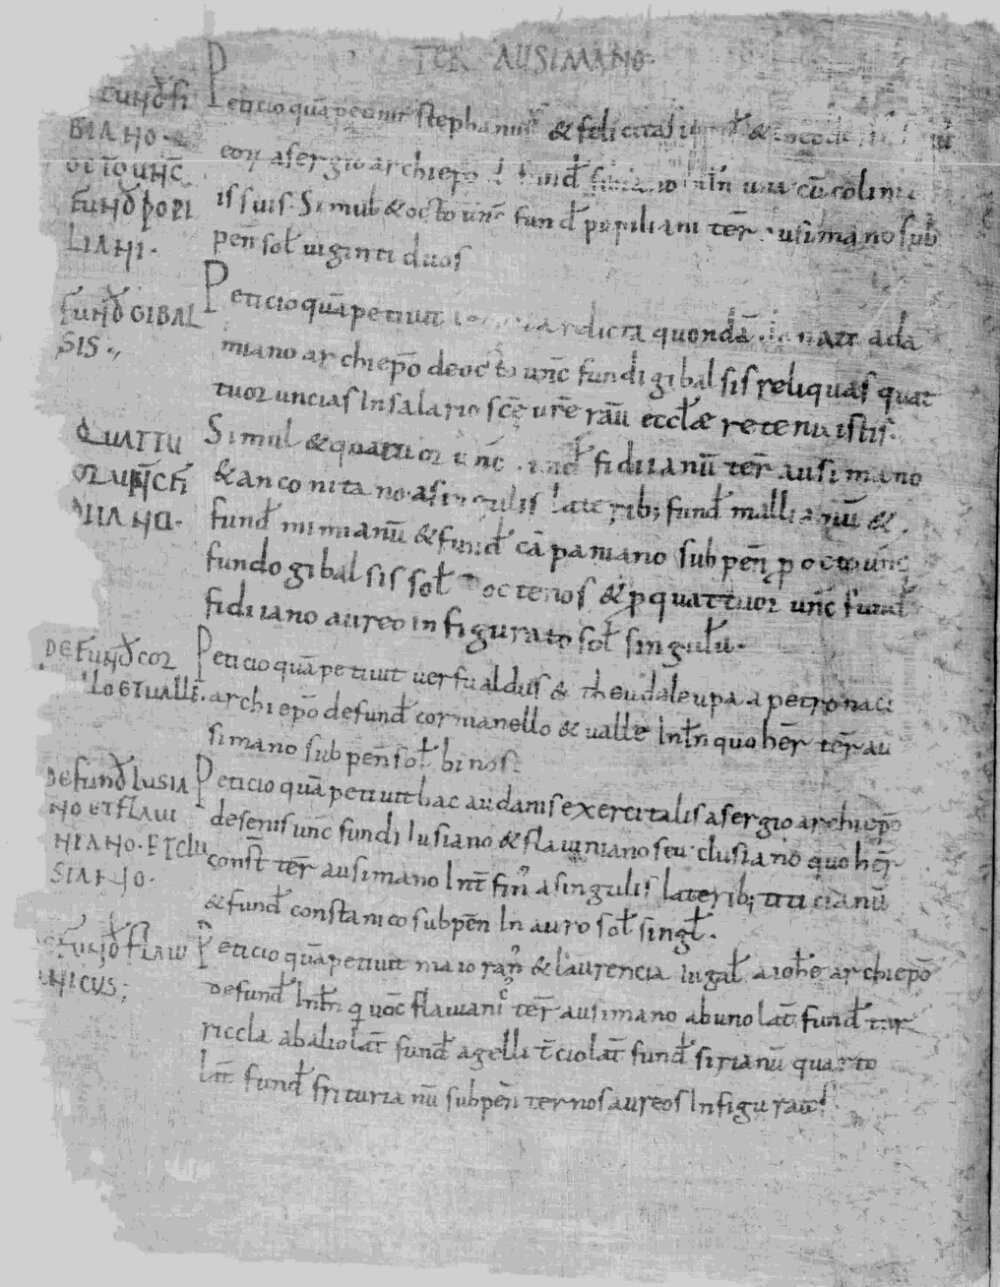 TER AUSIMANO
FUND FI
BIANO
OCTO UNC
FUND POPI
LIANI.
Peticio quā petiuit stephanus & felicitas
eoꝝ a sergio archiepō fund una cū colonis
is suis. Simul & octo unc fund popiliani tēr ausimano sub
pen̄ sol uiginti duos
FUND GIBAL
SIS.,
Peticio quā petiuit dicta quondā ada
miano archiepō de octo unc̄ fundi gibalsis reliquas quat
tuor uncias In salario scē urē rau ecclæ retenuistis.
QUATTU
OR UNC FI
Simul & quattuor unc̄ fund fidiianū tēr ausimano
& anconitano. a singulis laterib; fund malliarū &
fund mimianū & fund cāpaniano sub pen̄ ꝑ octo unc̄
fundo gibalsis sol octenos & ꝑ quattuor unc̄ fund
fidiiano aureo infigurato sol singulū.
DE FUND COR
LO ET UALLE.
Peticio quā petiuit uerfualdus & theudaleupa a petronaci
archiepō de fund cormanello & ualle Intn quo hēr tēr au
simano sub pen̄ sol binos
DE FUND LUSIA
NO ET FLAUI
NIANO. ET CLU
SIANO.
Peticio quā petiuit bacaudanis exercitalis a sergio archiepō
de senis unc̄ fundi lusiano & flauiniano seu clusiano quo hēr
const tēr ausimano Int fin a singulis laterib; titicianū
& fund constanico sub pen̄ In auro sol singl.
FUND FLAUI
NICUS;
Peticio quā petiuit maioran & laurencia iugal a iohē archiepō
de fund Intn q uōc flauiani tēr ausimano ab uno lat̄ fund tur
riccla ab alio lat̄ fund agelli t̄cio lat̄ fund sirianū quarto
lat̄ fund frituria nū sub pen̄ ternos aureos Infigurat